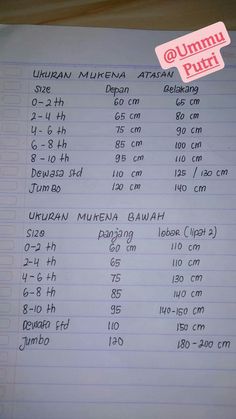 @Ummu
Putri
UKURAN MUKENA ATASAN
Size Depan Belakang
0-2 th 60 cm 65 cm
2-4 th 65 cm 80 cm
4-6 th 75 cm 90 cm
6-8 th 85 cm 100 cm
8-10 th 95 cm 110 cm
Dewasa Std 110 cm 125 / 130 cm
Jumbo 120 cm 140 cm
UKURAN MUKENA BAWAH
Size panjang lebar (lipat 2)
0-2 th 60 cm 110 cm
2-4 th 65 110 cm
4-6 th 75 130 cm
6-8 th 85 140 cm
8-10 th 95 140-150 cm
Dewasa Std 110 150 cm
Jumbo 120 180-200 cm